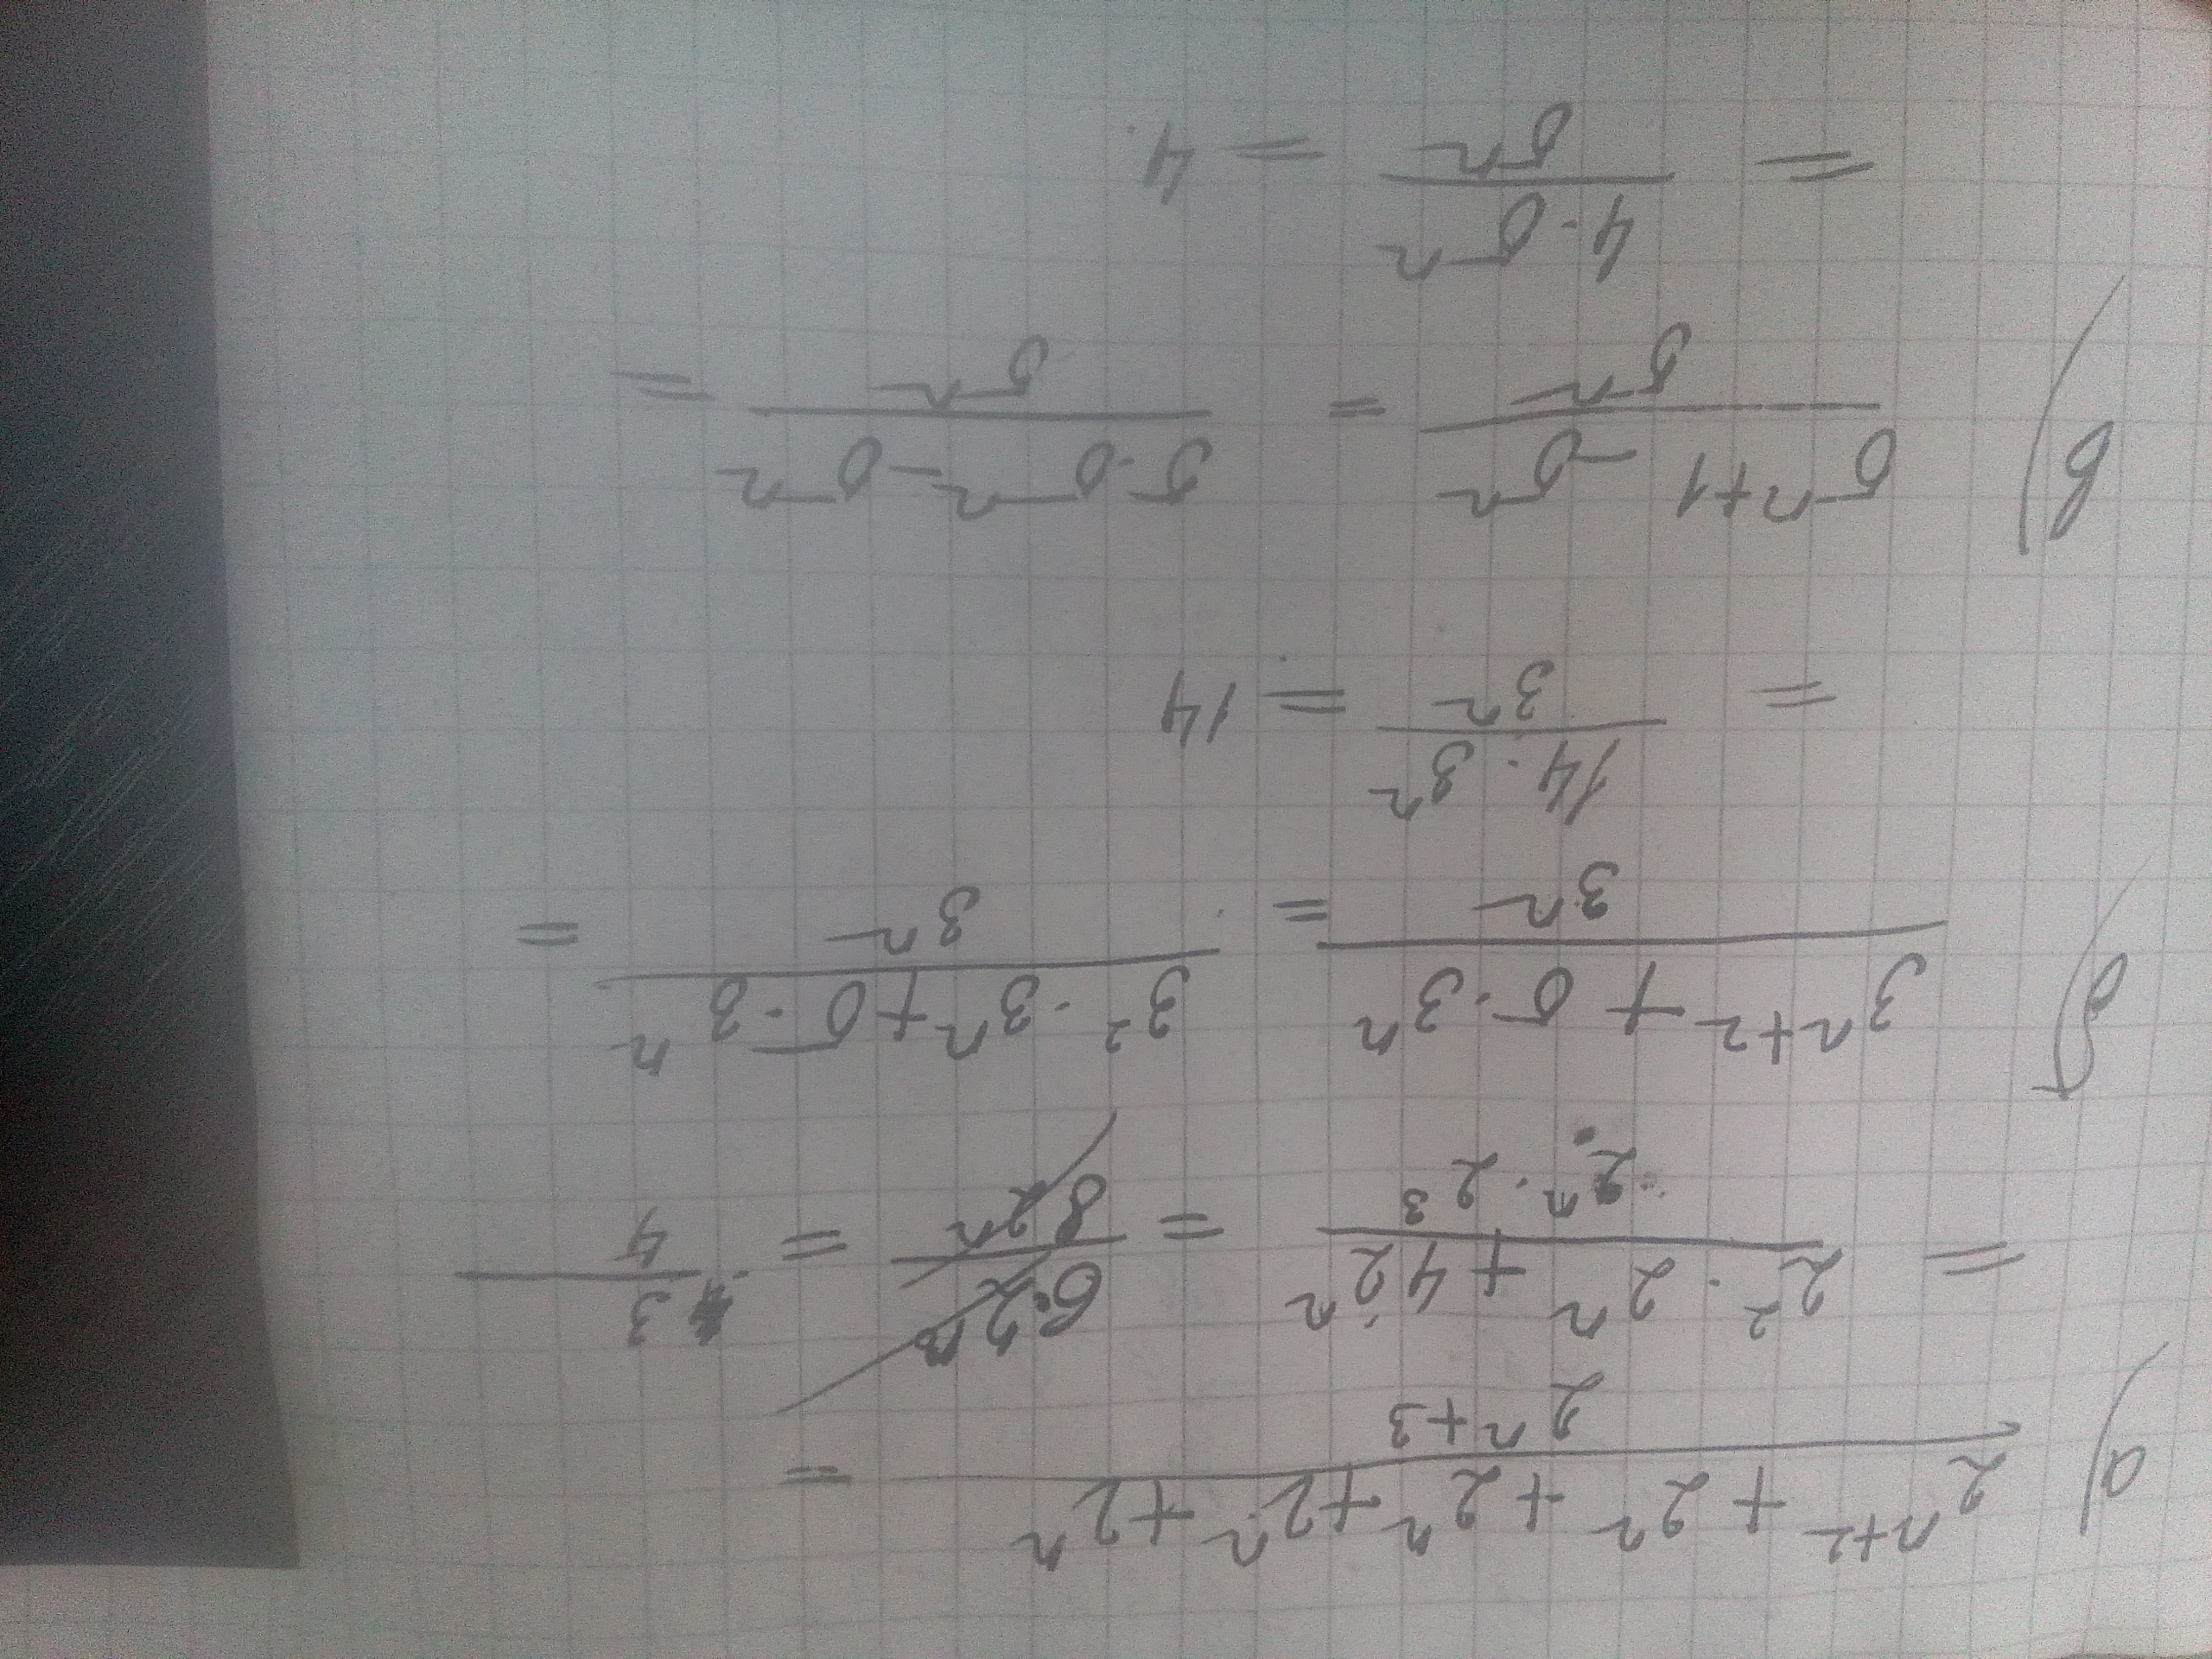 а) (2^{n+2} + 2^n + 2^n + 2^n + 2^n) / 2^{n+3} =
= (2^2 · 2^n + 4 · 2^n) / (2^n · 2^3) = = 3/4
б) (3^{n+2} + 5 · 3^n) / 3^n = (3^2 · 3^n + 5 · 3^n) / 3^n =
= (14 · 3^n) / 3^n = 14
в) (5^{n+1} - 5^n) / 5^n = (5 · 5^n - 5^n) / 5^n =
= (4 · 5^n) / 5^n = 4.